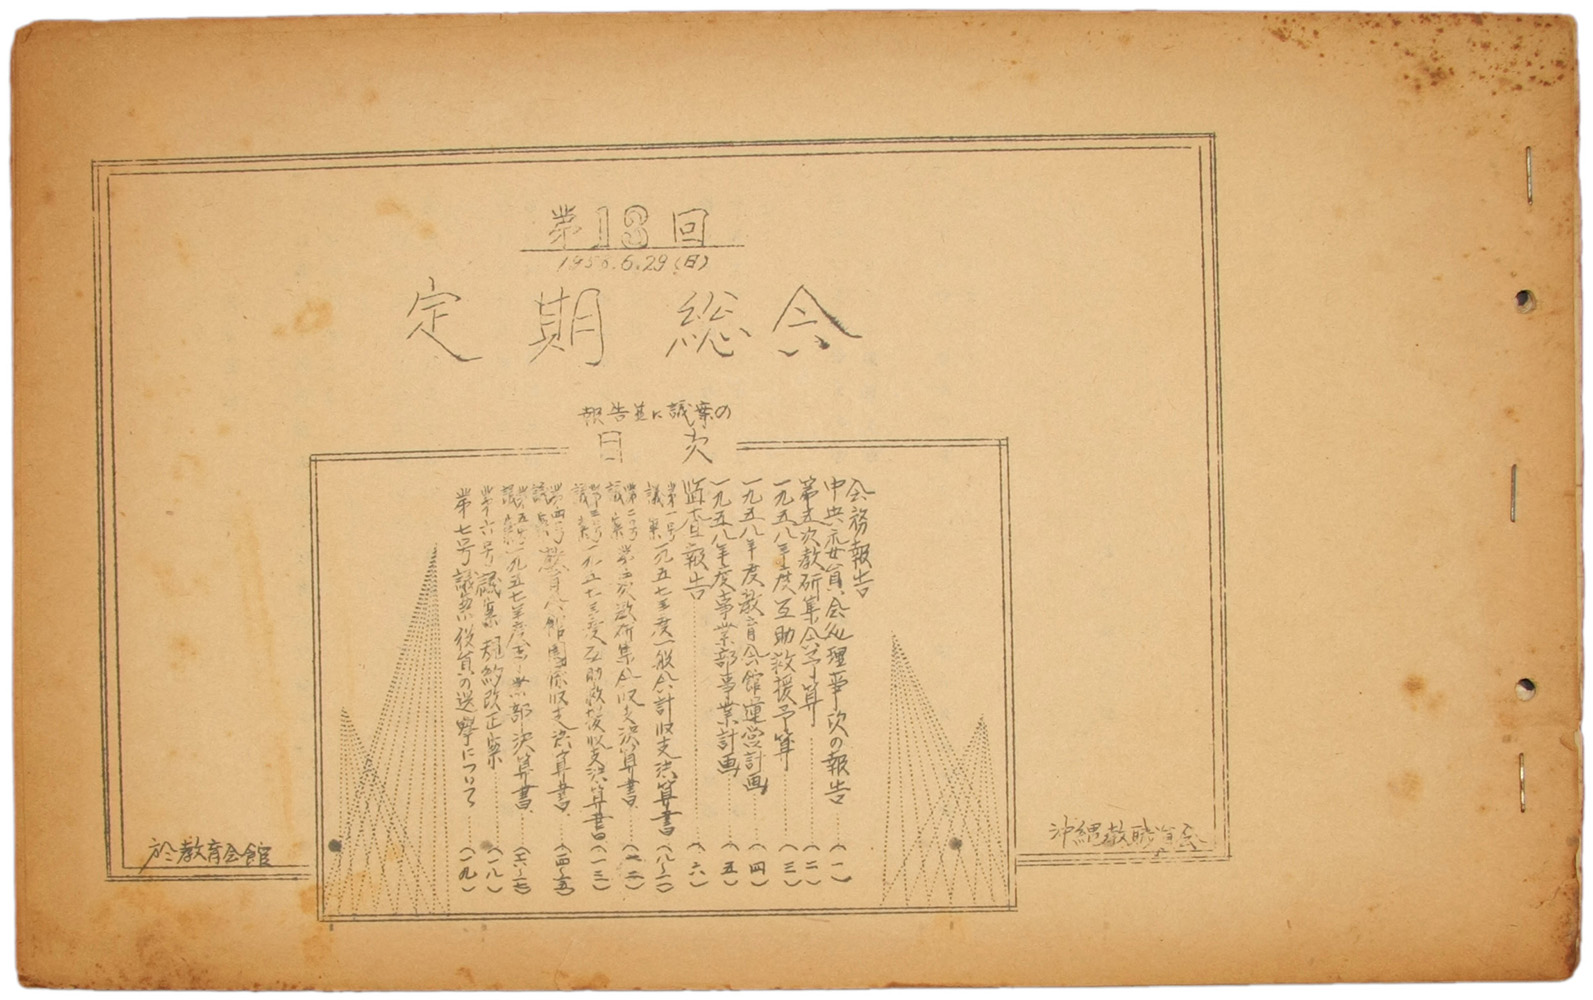 第13回
1958.6.29(日)
定期総会
報告並に議案の
目次
会務報告
中央委員会処理事項の報告……(一)
第五次教研集会予算……(二)
一九五八年度互助救援予算……(三)
一九五八年度教育会館運営計画……(四)
一九五八年度事業部事業計画……(五)
監査報告……(六)
第一号議案 一九五七年度一般会計収支決算書(八〜一一)
第二号議案 第五次教研集会収支決算書……(一二)
第三号議案 一九五七年度互助救援収支決算書(一三)
第四号議案 教育会館関係収支決算書……(一四〜一五)
第五号議案 一九五七年度事業部決算書……(一六〜一七)
第六号議案 規約改正案……(一八)
第七号議案 役員の選挙について……(一九)
於教育会館
沖縄教職員会